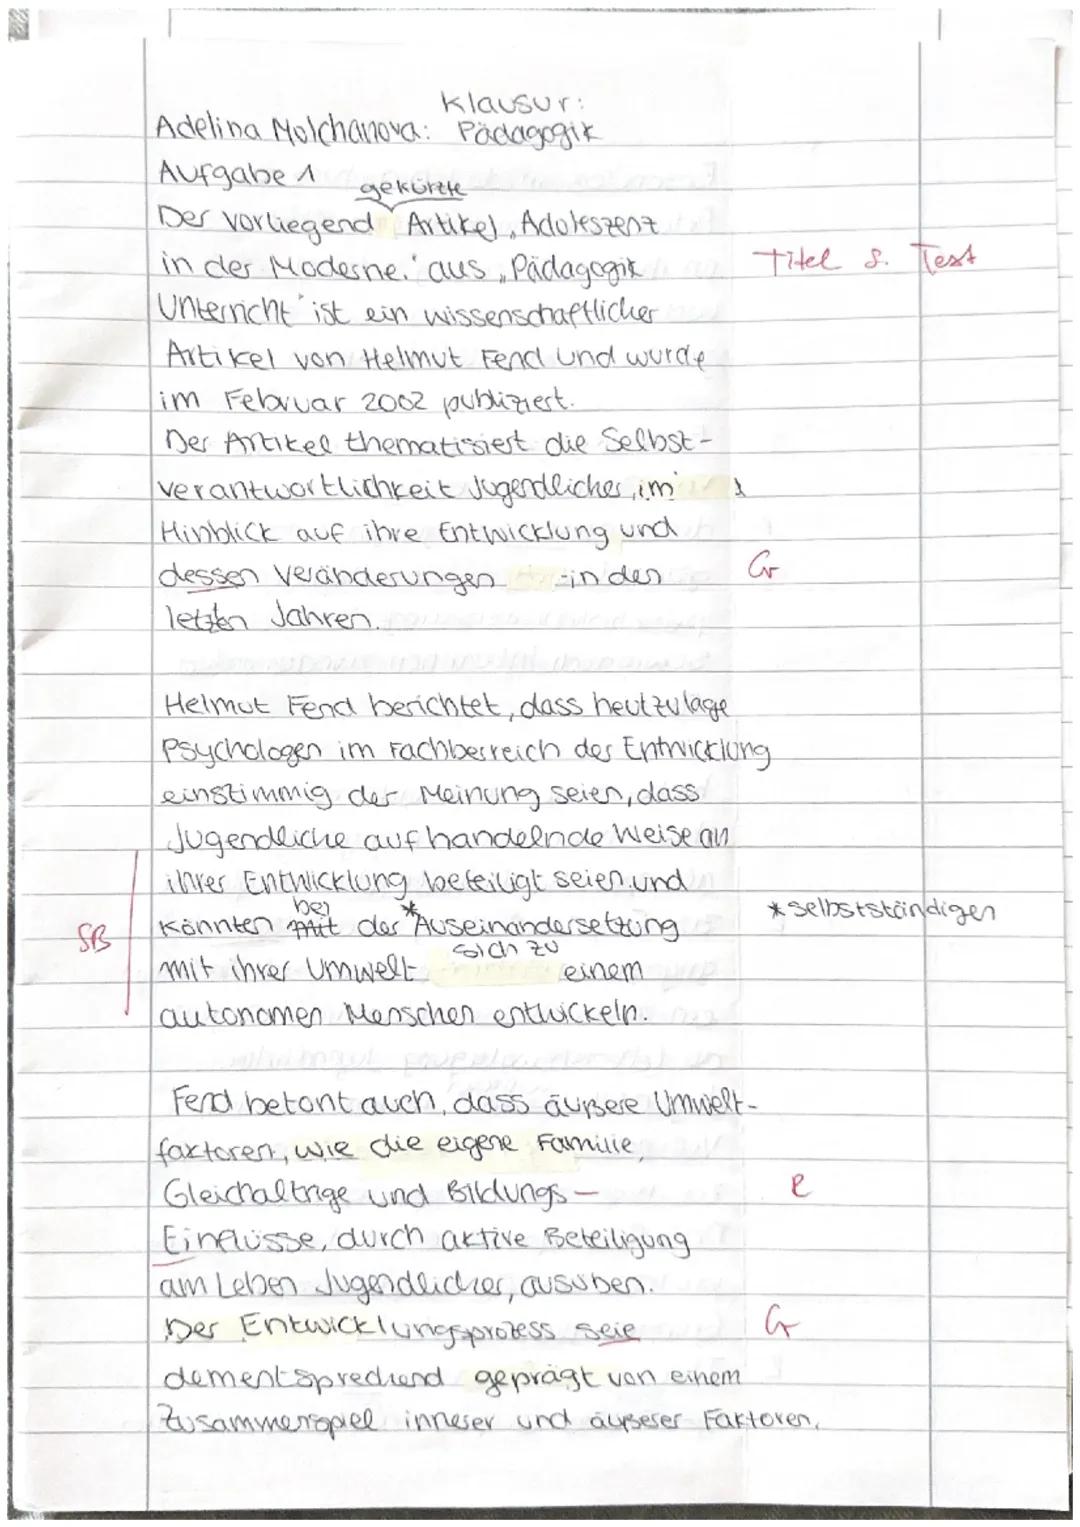 Klausur:
Adelina Molchanova: Pädagogik
Aufgabe 1
gekürzte
Der vorliegend Artikel „Adoleszenz
in der Moderne.' aus „Pädagogik Titel s. Text
Unterricht' ist ein wissenschaftlicher
Artikel von Helmut Fend und wurde
im Februar 2002 publiziert.
Der Artikel thematisiert die Selbst-
verantwortlichkeit Jugendlicher, im
Hinblick auf ihre Entwicklung und
dessen Veränderungen in den Gr
letzten Jahren.
Helmut Fend berichtet, dass heutzulage
Psychologen im Fachberreich der Entwicklung
einstimmig der Meinung seien, dass
Jugendliche auf handelnde Weise an
ihrer Entwicklung beteiligt seien und
bei
SB könnten mit der *Auseinandersetzung *selbstständigen
sich zu
mit ihrer Umwelt einem
autonomen Menschen entwickeln.
Fend betont auch, dass äußere Umwelt-
faktoren, wie die eigene Familie,
Gleichaltrige und Bildungs- R
Einflüsse, durch aktive Beteiligung
am Leben Jugendlicher, ausüben.
Der Entwicklungsprozess seie Gr
dementsprechend geprägt von einem
Zusammenspiel innerer und äußerer Faktoren.